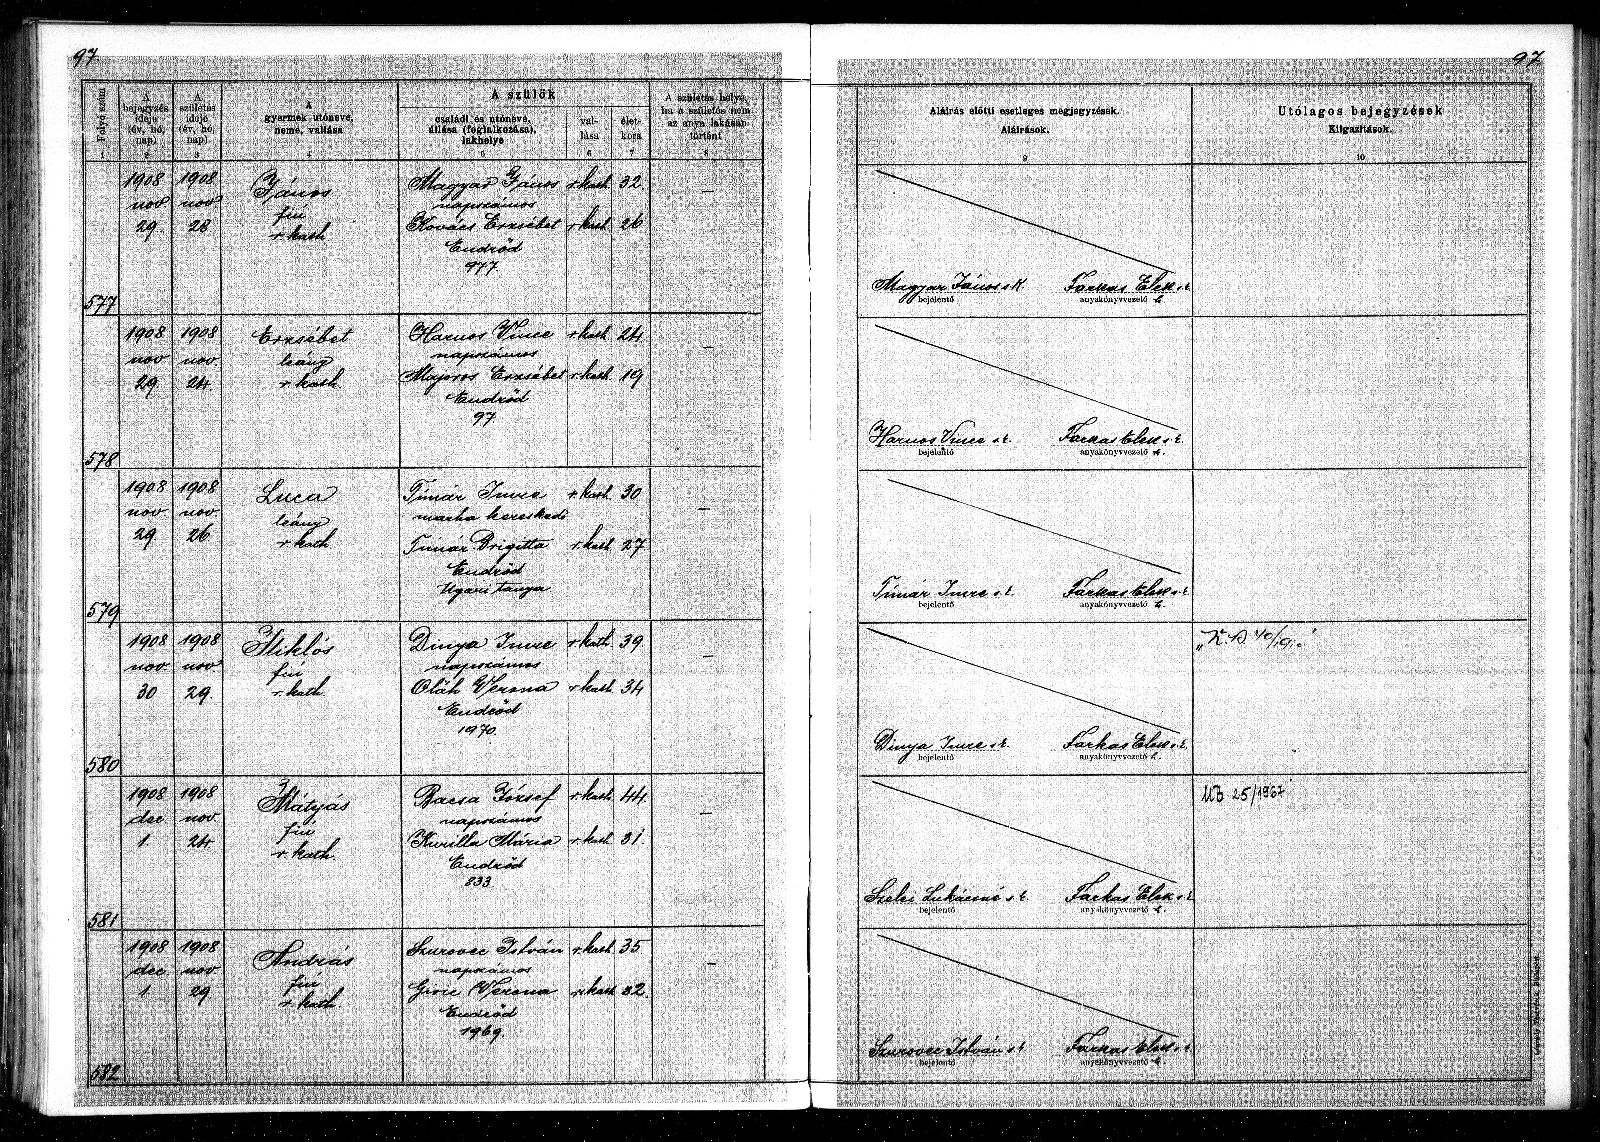 97
97
Folyó szám
A bejegyzés ideje (év, hó, nap)
A születés ideje (év, hó, nap)
A gyermek utóneve, neme, vallása
A szülők
családi és utóneve, állása (foglalkozása), lakhelye
vallása
életkora
A születés helye, ha a születés nem az anya lakásán történt
Aláírás előtti esetleges megjegyzések.
Aláírások.
Utólagos bejegyzések
Kiigazítások.
1 2 3 4 5 6 7 8 9 10
1908 1908 János Magyar János r. kath. 32. —
nov nov fiú napszámos
29 28 r. kath Kovács Erzsébet r. kath 26
Endrőd
977
577
Magyar János s.k. Farkas Elek s.k.
bejelentő anyakönyvvezető h.
1908 1908 Erzsébet Harnos Vince r. kath 24. —
nov nov. leány napszámos
29 24 r. kath. Majoros Erzsébet r. kath. 19
Endrőd
97.
578
Harnos Vince s.k. Farkas Elek s.k.
bejelentő anyakönyvvezető h.
1908 1908 Luca Tímár Imre r. kath. 30 —
nov. nov. leány marha kereskedő
29 26 r. kath Tímár Brigitta r. kath. 27
Endrőd
Ugari tanya
579
Tímár Imre s.k. Farkas Elek s.k.
bejelentő anyakönyvvezető h.
1908 1908 Miklós Dinya Imre r. kath. 39. —
nov. nov fiú napszámos
30 29. r. kath. Oláh Verona r. kath 34
Endrőd
1970.
580
Dinya Imre s.k. Farkas Elek s.k.
bejelentő anyakönyvvezető h.
1908 1908 Mátyás Bacsa József r. kath 44. —
dec nov. fiú napszámos
1 24 r. kath. Kurilla Mária r. kath. 31.
Endrőd
833
581
Szelei Lukácsné s.k. Farkas Elek s.k.
bejelentő anyakönyvvezető h.
25/1967
1908 1908 András Szurovec István r. kath 35 —
dec nov. fiú napszámos
1 29 r. kath. Verona r. kath 32.
Endrőd
1969.
582
Szurovec István s.k. Farkas Elek s.k.
bejelentő anyakönyvvezető h.